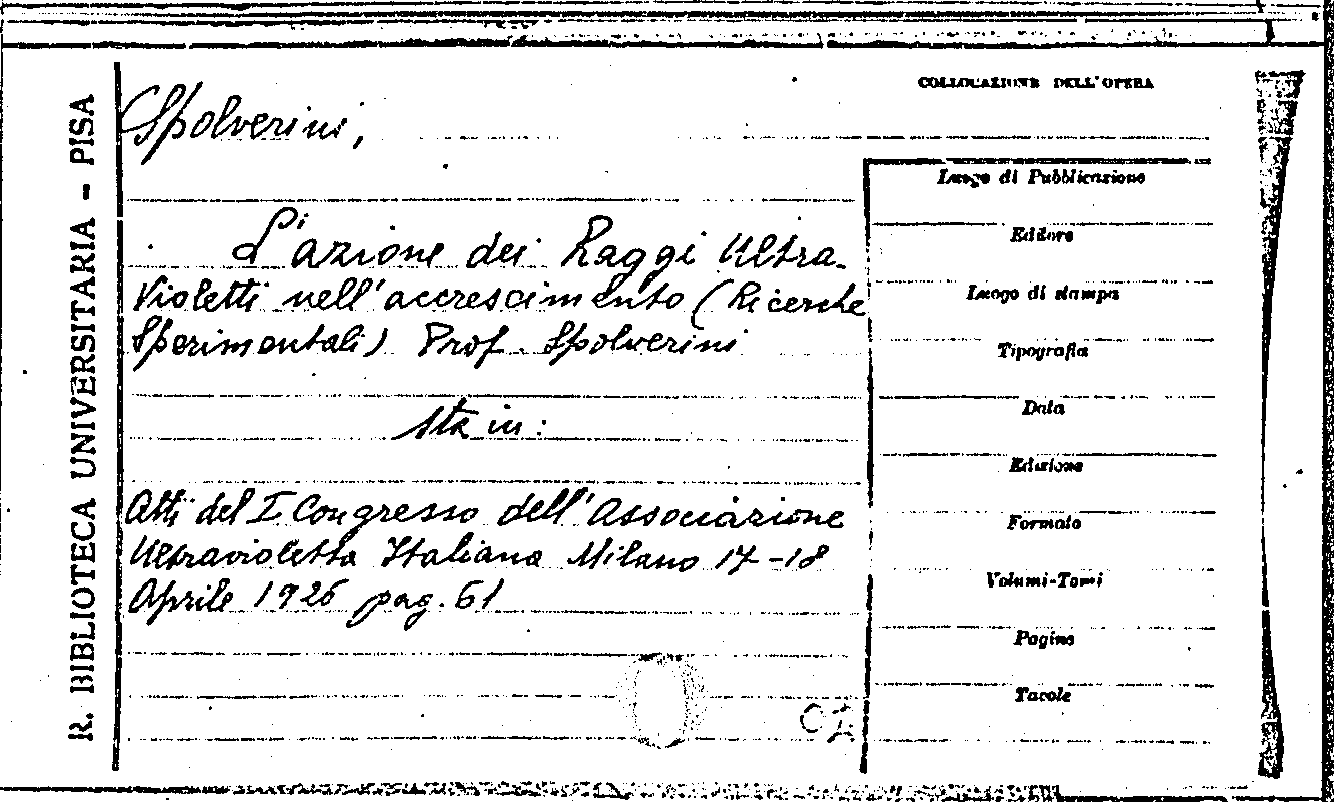 R. BIBLIOTECA UNIVERSITARIA - PISA
COLLOCAZIONE DELL'OPERA
Spolverini,
L'azione dei Raggi Ultra-
Violetti nell'accrescimento (Ricerche
Sperimentali) Prof. Spolverini
sta in:
Atti del I Congresso dell'Associazione
Ultravioletta Italiana Milano 17-18
Aprile 1926 pag. 61
Luogo di Pubblicazione
Editore
Luogo di stampa
Tipografia
Data
Edizione
Formato
Volumi-Tomi
Pagine
Tavole